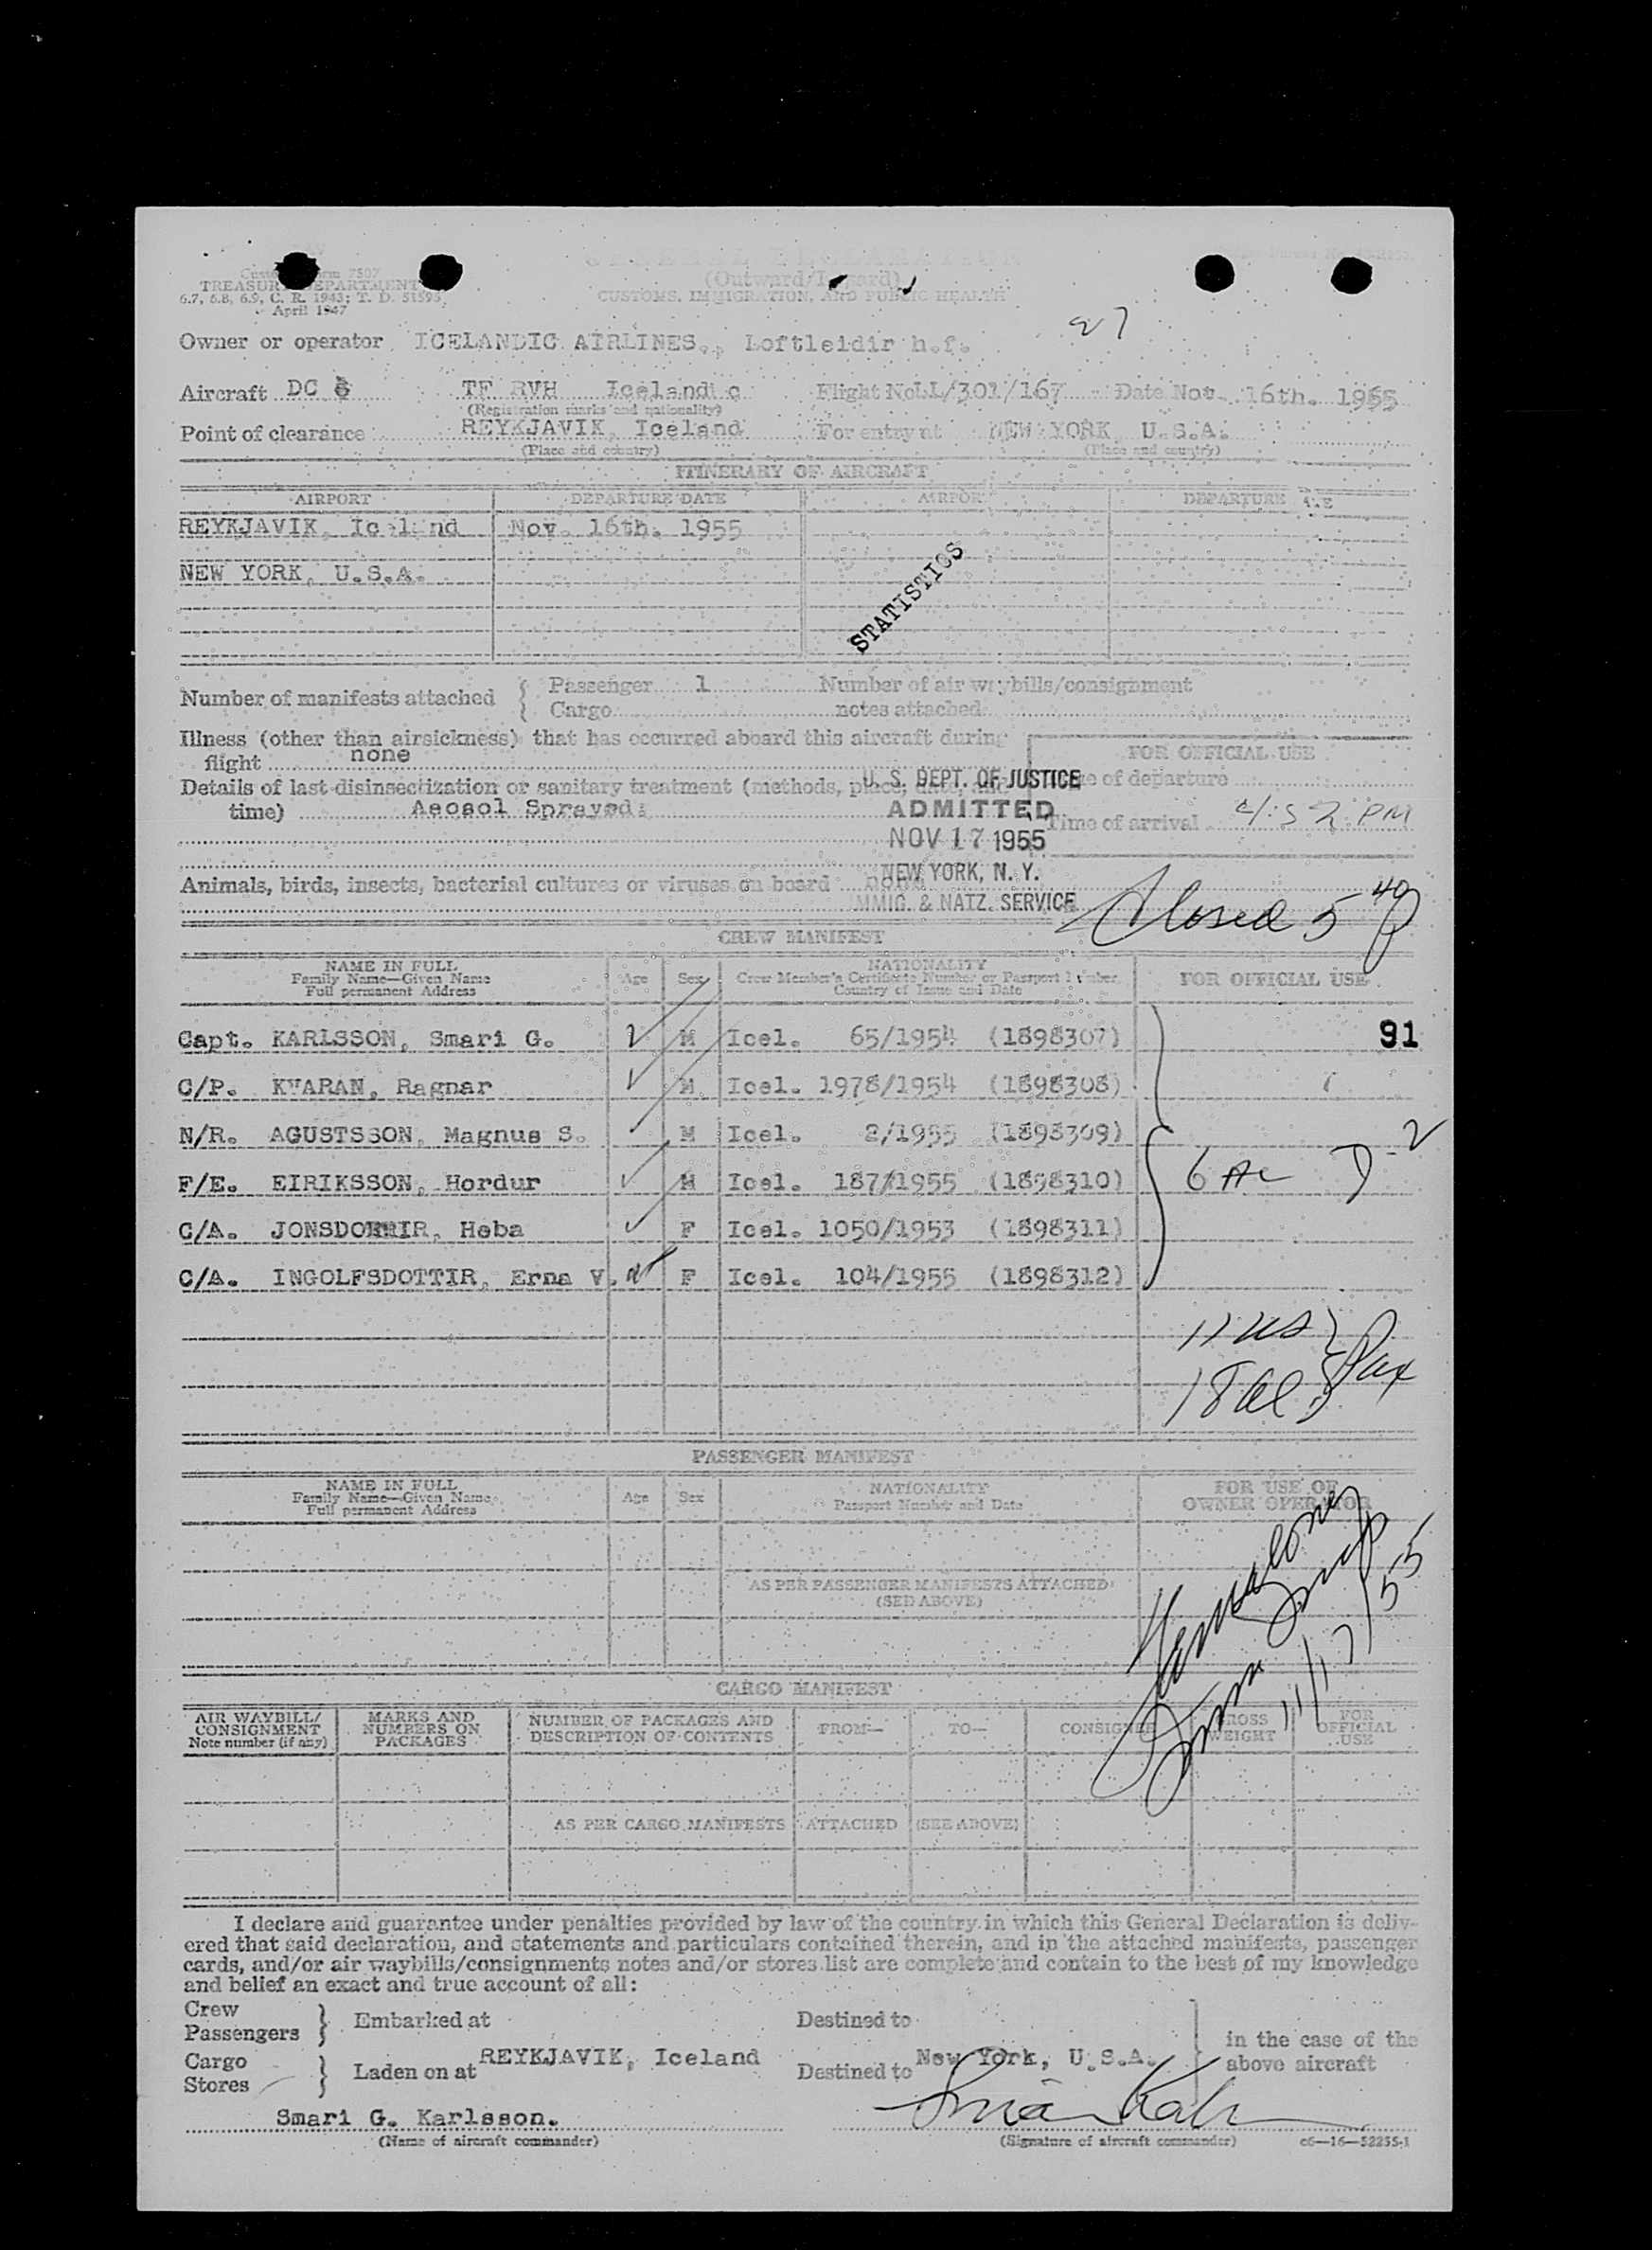 Form 7507
TREASURY DEPARTMENT
6.7, 6.8, 6.9, C. R. 1943; T. D. 51595
April 1947
GENERAL DECLARATION
(Outward/Inward)
CUSTOMS, IMMIGRATION, AND PUBLIC HEALTH
27
Owner or operator ICELANDIC AIRLINES., Loftleidir h.f.
Aircraft DC TF RVH Icelandic Flight No LL/301/167 Date Nov. 16th. 1955
(Registration marks and nationality)
Point of clearance REYKJAVIK, Iceland For entry at NEW YORK, U.S.A.
(Place and country) (Place and country)
ITINERARY OF AIRCRAFT
AIRPORT DEPARTURE DATE AIRPORT DEPARTURE DATE
REYKJAVIK, Iceland Nov. 16th. 1955
NEW YORK, U.S.A.
STATISTICS
Number of manifests attached { Passenger 1 Number of air waybills/consignment
Cargo notes attached
Illness (other than airsickness) that has occurred aboard this aircraft during
flight none
FOR OFFICIAL USE
Details of last disinsectization or sanitary treatment (methods, place,
time) Aeosol Sprayed.
Time of departure
Time of arrival 4:52 PM
U. S. DEPT. OF JUSTICE
ADMITTED
NOV 17 1955
NEW YORK, N. Y.
IMMIG. & NATZ. SERVICE
Animals, birds, insects, bacterial cultures or viruses on board none
Closed 5 40
CREW MANIFEST
NAME IN FULL
Family Name—Given Name
Full permanent Address
Age Sex
NATIONALITY
Crew Member's Certificate Number or Passport Number
Country of Issue and Date
FOR OFFICIAL USE
Capt. KARLSSON, Smari G. M Icel. 65/1954 (1898307) 91
C/P. KVARAN, Ragnar M Icel. 1978/1954 (1898308)
N/R. AGUSTSSON, Magnus S. M Icel. 2/1955 (1898309)
F/E. EIRIKSSON, Hordur M Icel. 187/1955 (1898310) 6 Al D-2
C/A. JONSDOTTIR, Heba F Icel. 1050/1953 (1898311)
C/A. INGOLFSDOTTIR, Erna V. F Icel. 104/1955 (1898312)
11 US
18 al } Pax
PASSENGER MANIFEST
NAME IN FULL
Family Name—Given Name
Full permanent Address
Age Sex
NATIONALITY
Passport Number and Date
FOR USE OF
OWNER OPERATOR
AS PER PASSENGER MANIFESTS ATTACHED
(SEE ABOVE)
11/17/55
CARGO MANIFEST
AIR WAYBILL/
CONSIGNMENT
Note number (if any)
MARKS AND
NUMBERS ON
PACKAGES
NUMBER OF PACKAGES AND
DESCRIPTION OF CONTENTS
FROM— TO— CONSIGNEE
GROSS
WEIGHT
FOR
OFFICIAL
USE
AS PER CARGO MANIFESTS ATTACHED (SEE ABOVE)
I declare and guarantee under penalties provided by law of the country in which this General Declaration is deliv-
ered that said declaration, and statements and particulars contained therein, and in the attached manifests, passenger
cards, and/or air waybills/consignments notes and/or stores list are complete and contain to the best of my knowledge
and belief an exact and true account of all:
Crew
Passengers } Embarked at Destined to
Cargo
Stores } Laden on at REYKJAVIK, Iceland Destined to New York, U.S.A.
in the case of the
above aircraft
Smari G. Karlsson.
(Name of aircraft commander) (Signature of aircraft commander) c6—16—52255-1